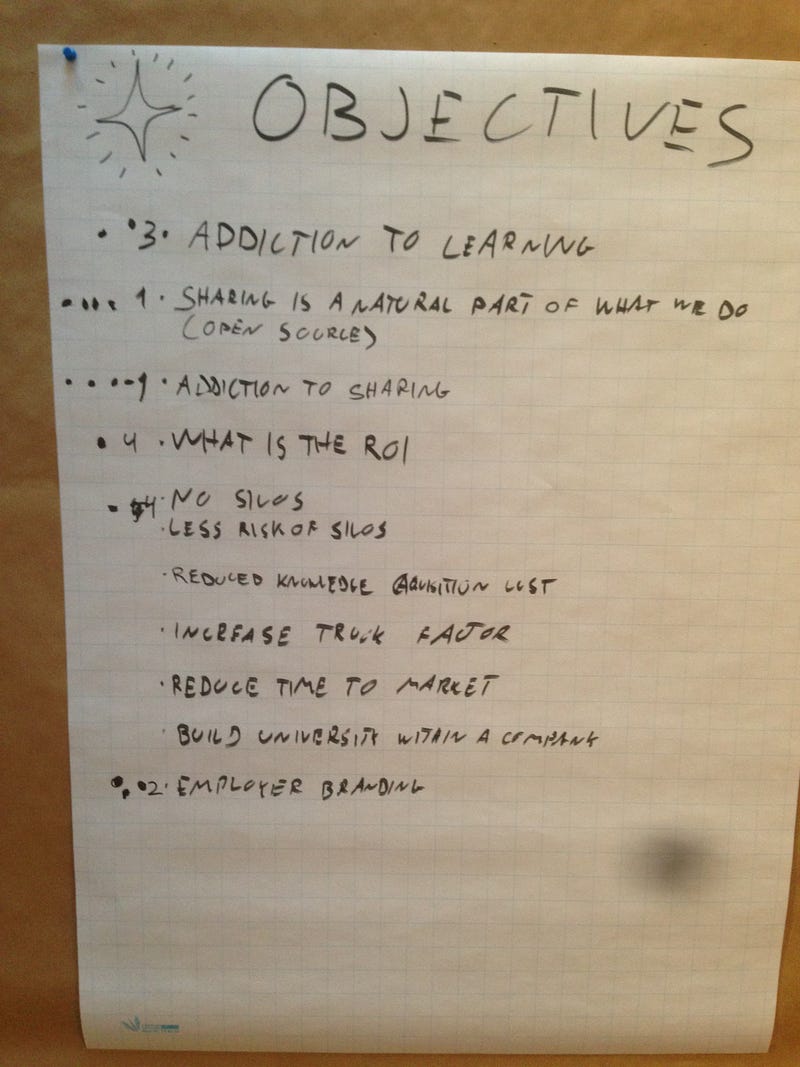 OBJECTIVES
3. ADDICTION TO LEARNING
1. SHARING IS A NATURAL PART OF WHAT WE DO
(OPEN SOURCE)
1 · ADDICTION TO SHARING
4 · WHAT IS THE ROI
4 · NO SILOS
· LESS RISK OF SILOS
· REDUCED KNOWLEDGE AQUISITION COST
· INCREASE TRUCK FACTOR
· REDUCE TIME TO MARKET
· BUILD UNIVERSITY WITHIN A COMPANY
2 · EMPLOYER BRANDING